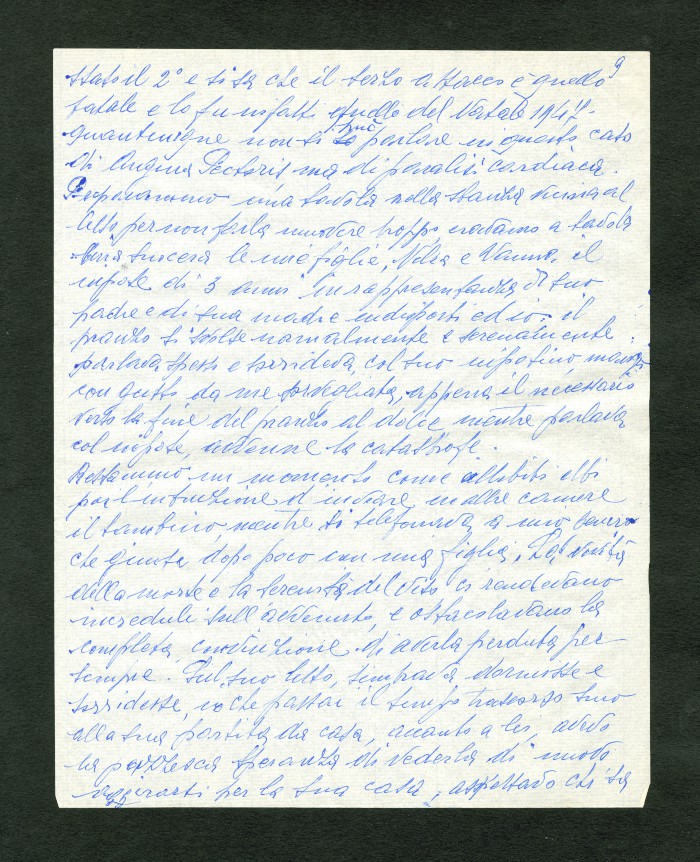 9
stato il 2° e si sa che il terzo attacco è quello
fatale e lo fu infatti quello del Natale 1947-
quantunque non si può parlare in questo caso
di Angina Pectoris ma di paralisi cardiaca.
Preparammo una tavola nella stanza vicina al
letto per non farla muovere troppo eravamo a tavola
mia suocera le mie figlie, Nilia e Vanna, il
nipote di 3 anni in rappresentanza di suo
padre e di sua madre indisposti ed io. il
pranzo si svolse normalmente e serenamente:
parlava spesso e sorrideva col suo nipotino, mangiò
con gusto da me sorvegliata, appena il necessario
verso la fine del pranzo al dolce mentre parlava
col nipote, avvenne la catastrofe.
Restammo un momento come allibiti ebbi
poi l'intuizione d'inviare in altre camere
il bambino, mentre si telefonava a mio genero
che giunse dopo poco con mia figlia. La novità
della morte e la serenità del viso ci rendevano
increduli sull'avvenuto, e ostacolavano la
completa convinzione di averla perduta per
sempre. Sul suo letto, sembrava dormisse e
sorridesse, io che passai il tempo trascorso sino
alla sua partita da casa, accanto a lei, avevo
la pazzesca speranza di vederla di nuovo
aggirarsi per la sua casa, aspettavo che si